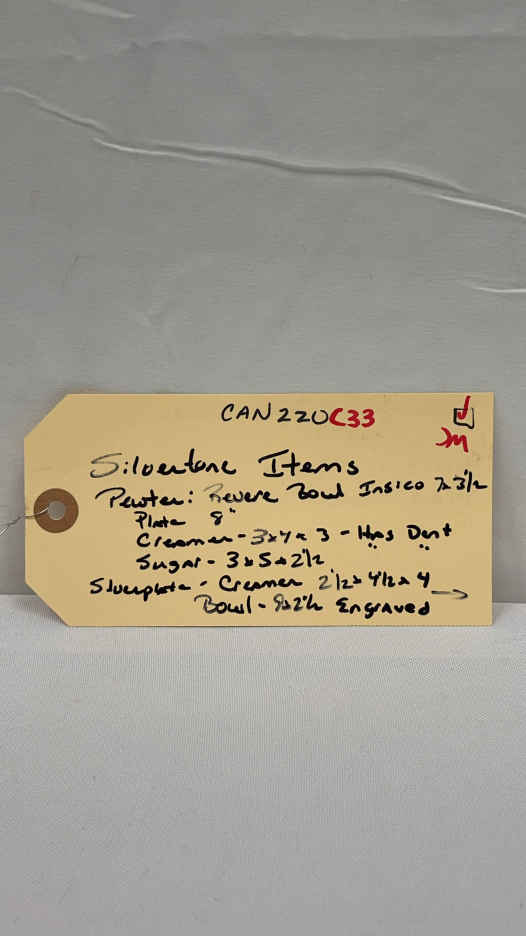 CAN220C33
JM
Silvertone Items
Pewter: Revere Bowl Insico 7x3½
Plate 8"
Creamer - 3x4x3 - Has Dent
Sugar - 3x5x2½
Silverplate - Creamer 2½x4½x4
Bowl - 9x2½ Engraved →